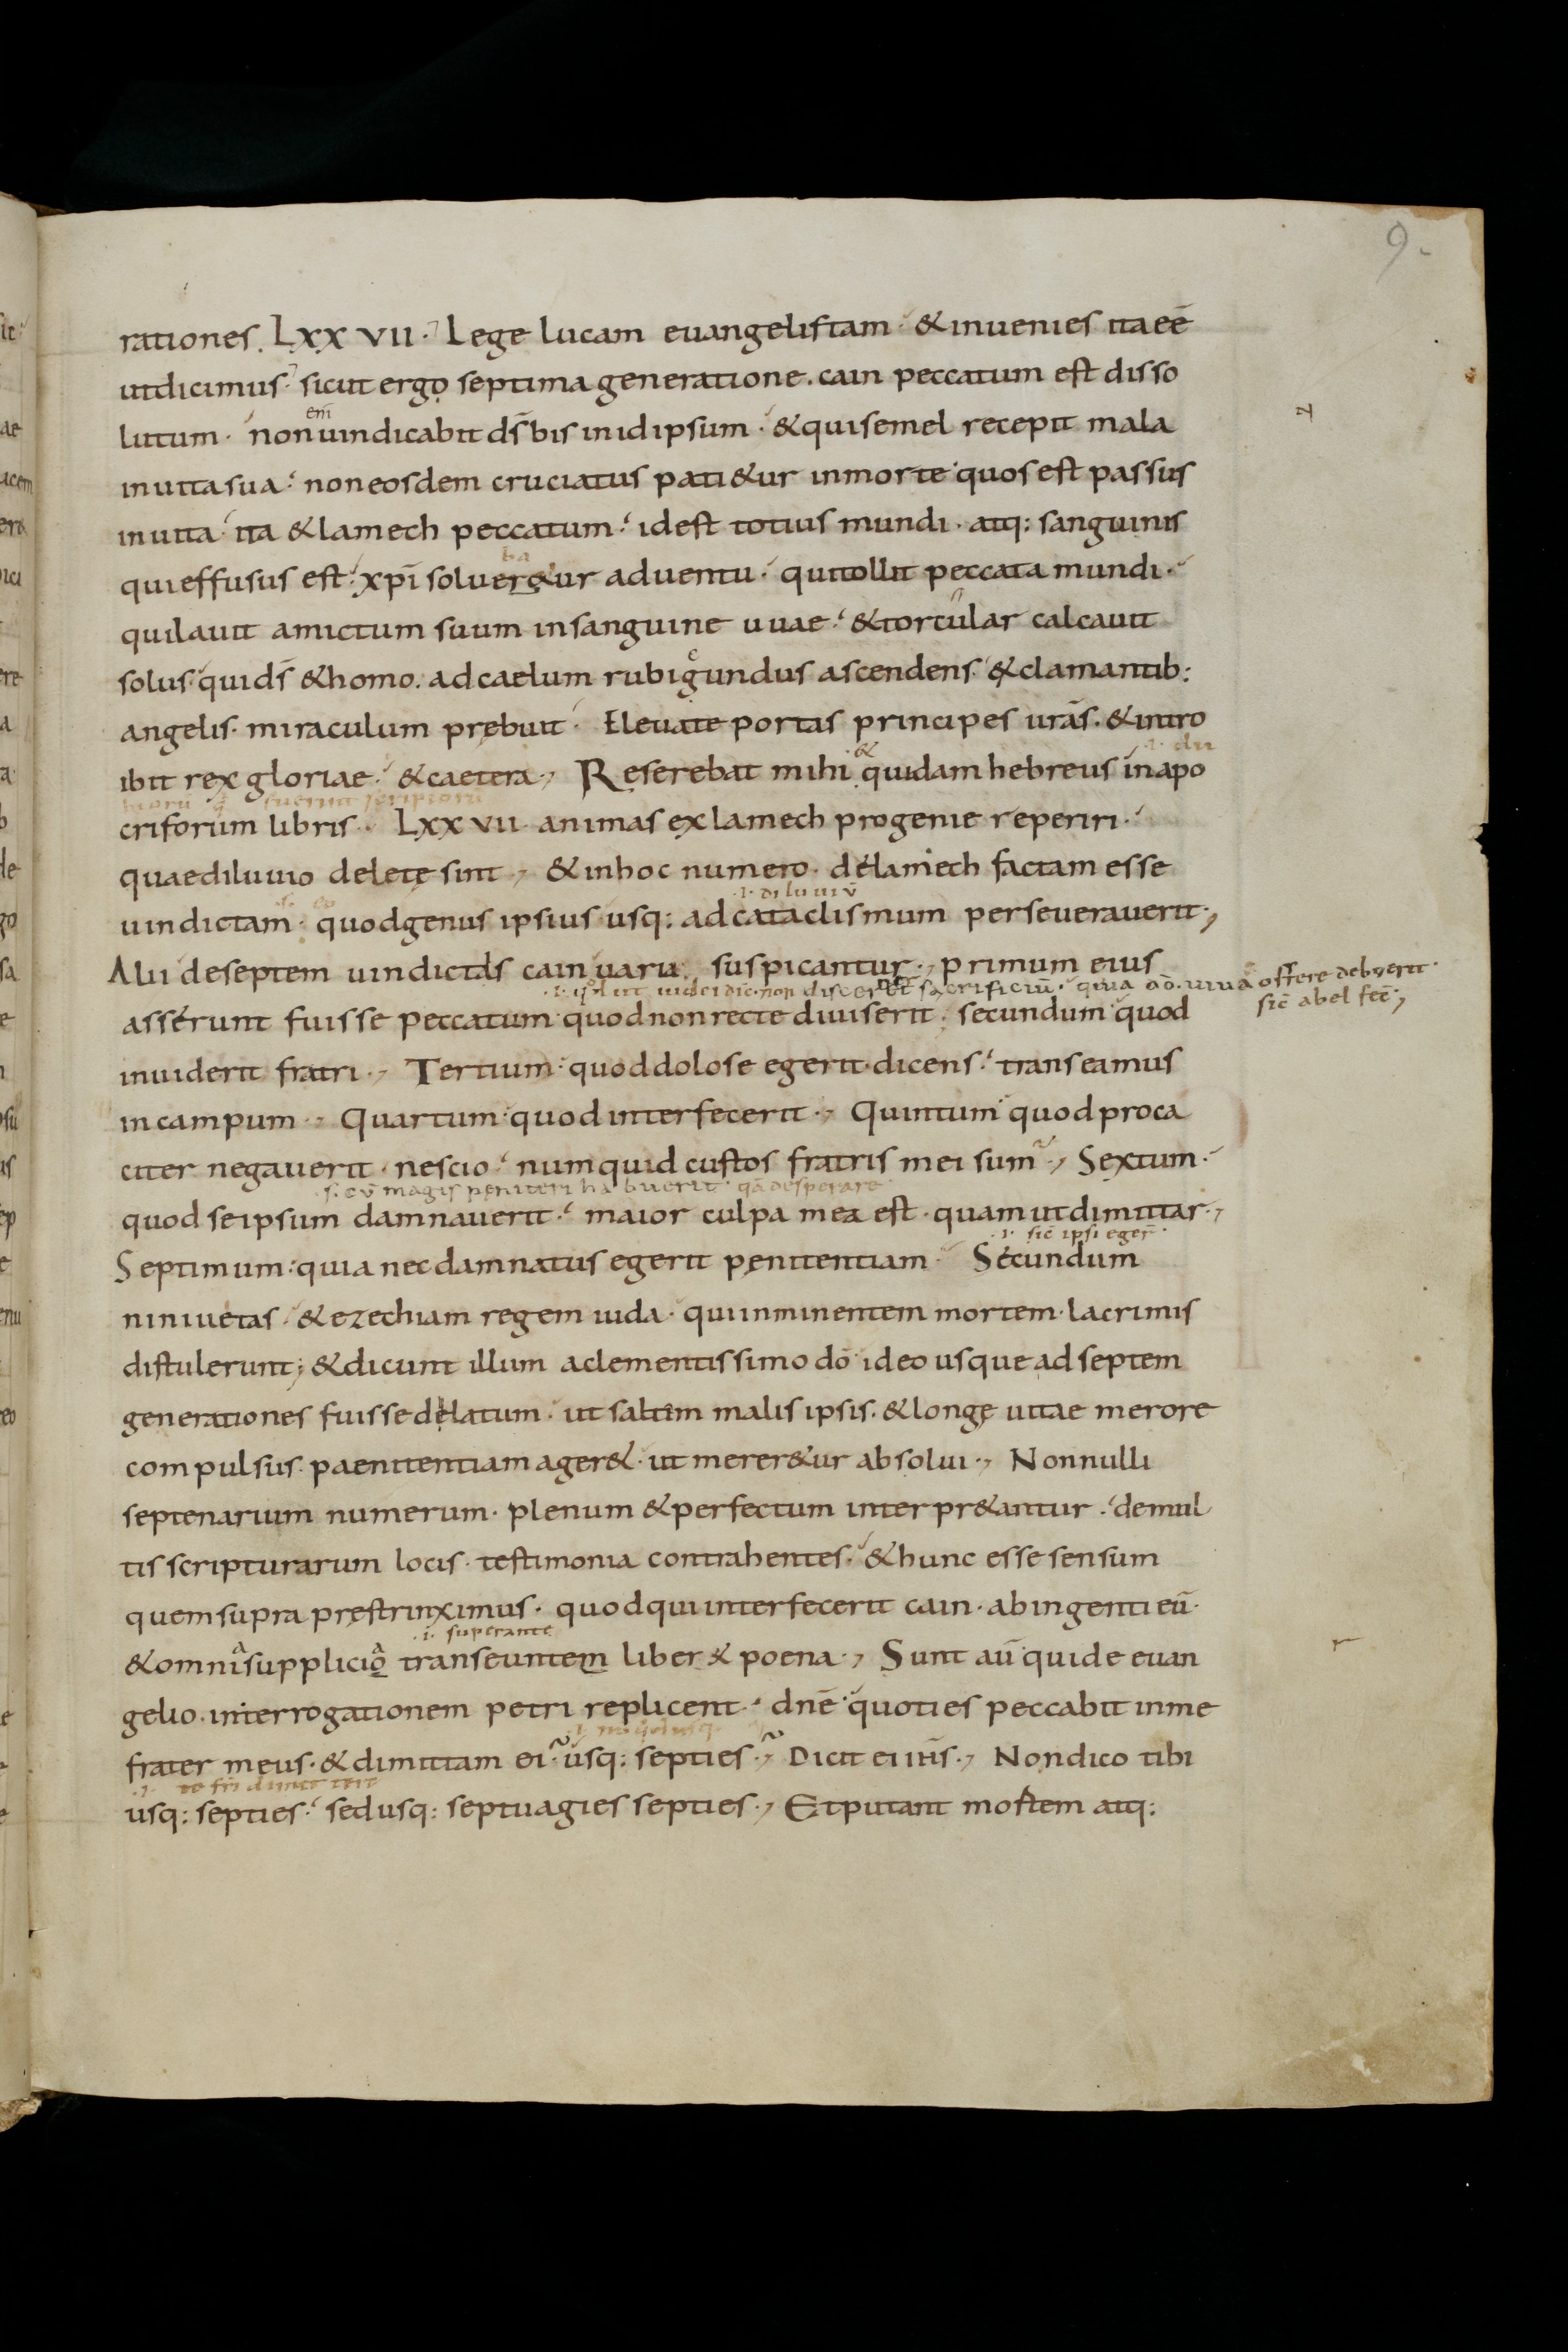 9.
rationes. LXXVII. Lege lucam euangelistam. & inuenies ita eē
ut dicimus. sicut ergo septima generatione. cain peccatum est disso
em̄
lutum. non uindicabit ds̄ bis in id ipsum. & qui semel recepit mala
in uita sua. non eosdem cruciatus pati&ur in morte quos est passus
in uita. ita & lamech peccatum. id est totius mundi. atq: sanguinis
ba
qui effusus est. xp̄i soluer&ur aduentu. qui tollit peccata mundi.
qui lauit amictum suum in sanguine uuae. & torcular calcauit
solus. qui ds̄ & homo. ad caelum rubigundus ascendens. & clamantib:
angelis. miraculum prębuit. Eleuate portas principes urās. & intro
&
ibit rex gloriae. & caetera., Reserebat mihi quidam hebreus in apo
criforum libris. LXXVII. animas ex lamech progenie reperiri.
quae diluuio deletę sint., & in hoc numero. de lamech factam esse
.i. diluuiū
uindictam. quod genus ipsius usq: ad cataclismum perseuerauerit.,
Alii de septem uindictis cain uaria suspicantur., primum eius
non discer& sacrificiū. quia dō. uiua offere debuerit.
sic̄ abel fec̄.,
asserunt fuisse peccatum quod non recte diuiserit. secundum quod
inuiderit fratri., Tertium. quod dolose egerit. dicens. transeamus
in campum., Quartum. quod interfecerit., Quintum quod proca
citer negauerit. nescio. numquid custos fratris mei sum., Sextum.
s. cū magis peniteri habuerit. quā desperare.
quod se ipsum damnauerit. maior culpa mea est. quam ut dimittar.,
.i. sic̄ ipsi eger̄.
Septimum. quia nec damnatus egerit pęnitentiam. Secundum
niniuetas. & ezechiam regem iuda. qui inminentem mortem. lacrimis
distulerunt; & dicunt illum a clementissimo dō ideo usque ad septem
generationes fuisse delatum. ut saltim malis ipsis. & longę uitae merore
compulsus. paenitentiam ager&. ut merer&ur absolui., Nonnulli
septenarium numerum. plenum & perfectum interpr&antur. de mul
tis scripturarum locis. testimonia contrahentes. & hunc esse sensum
quem supra pręstrinximus. quod qui interfecerit cain. ab ingenti eū.
.i. superante
& omni supplicio transeuntem liber& poena., Sunt aū qui de euan
gelio. interrogationem petri replicent. dnē quoties peccabit in me
frater meus. & dimittam ei. usq: septies., Dicit ei ihs̄., Non dico tibi
usq: septies. sed usq: septuagies septies., Et putant mortem atq: